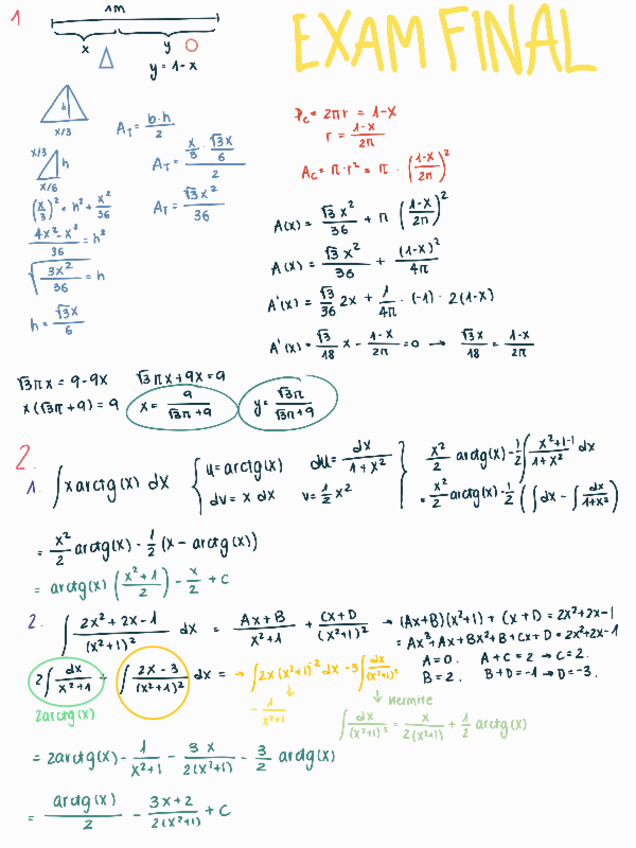 1
1m
EXAM FINAL
x y
y = 1-x
h
x/3
A_T = b·h/2
x/3 h
x/6
A_T = (x/3 · √3x/6)/2
(x/3)² = h² + x²/36
A_T = √3x²/36
(4x²-x²)/36 = h²
√(3x²/36) = h
h = √3x/6
P_c = 2πr = 1-x
r = (1-x)/2π
A_c = π·r² = π · ((1-x)/2π)²
A(x) = √3x²/36 + π ((1-x)/2π)²
A(x) = √3x²/36 + (1-x)²/4π
A'(x) = √3/36 2x + 1/4π · (-1) · 2(1-x)
A'(x) = √3/18 x - (1-x)/2π = 0 → √3x/18 = (1-x)/2π
√3πx = 9-9x √3πx+9x=9
x(√3π+9) = 9 x = 9/(√3π+9) y = √3π/(√3π+9)
2.
1. ∫x arctg(x) dx { u = arctg(x) du = dx/(1+x²)
dv = x dx v = ½x² } x²/2 arctg(x) - ½∫(x²+1-1)/(1+x²) dx
= x²/2 arctg(x) - ½ (∫dx - ∫dx/(1+x²))
= x²/2 arctg(x) - ½ (x - arctg(x))
= arctg(x) ((x²+1)/2) - x/2 + c
2. ∫(2x²+2x-1)/(x²+1)² dx = (Ax+B)/(x²+1) + (Cx+D)/(x²+1)² → (Ax+B)(x²+1) + Cx+D = 2x²+2x-1
= Ax³+Ax+Bx²+B+Cx+D = 2x²+2x-1
A=0. A+C=2 → C=2.
B=2. B+D=-1 → D=-3.
2∫dx/(x²+1) + ∫(2x-3)/(x²+1)² dx = → ∫2x(x²+1)⁻² dx - 3∫dx/(x²+1)²
2arctg(x)
-1/(x²+1)
↓ Hermite
∫dx/(x²+1)² = x/2(x²+1) + ½ arctg(x)
= 2arctg(x) - 1/(x²+1) - 3x/2(x²+1) - 3/2 arctg(x)
= arctg(x)/2 - (3x+2)/2(x²+1) + c